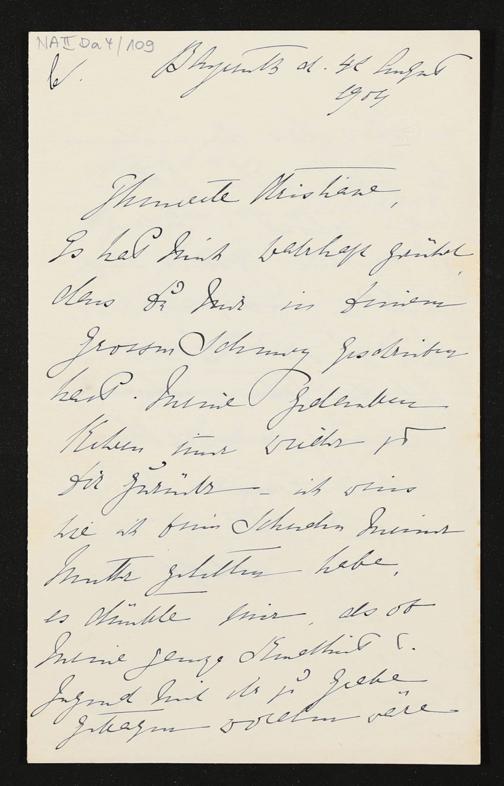 NA II Da 4/109
Bayreuth d. 4t August
1904
Theuerste Christiane,
Es hat mich wahrhaft gerührt
dass Du mir in deinem
grossen Schmerz geschrieben
hast. Meine Gedanken
kehren immer wieder zu
Dir zurück – ich weiss
wie ich beim Scheiden meiner
Mutter gelitten habe,
es dünkte mir, als ob
meine ganze Kindheit u.
Jugend mit ihr zu Grabe
getragen worden wäre